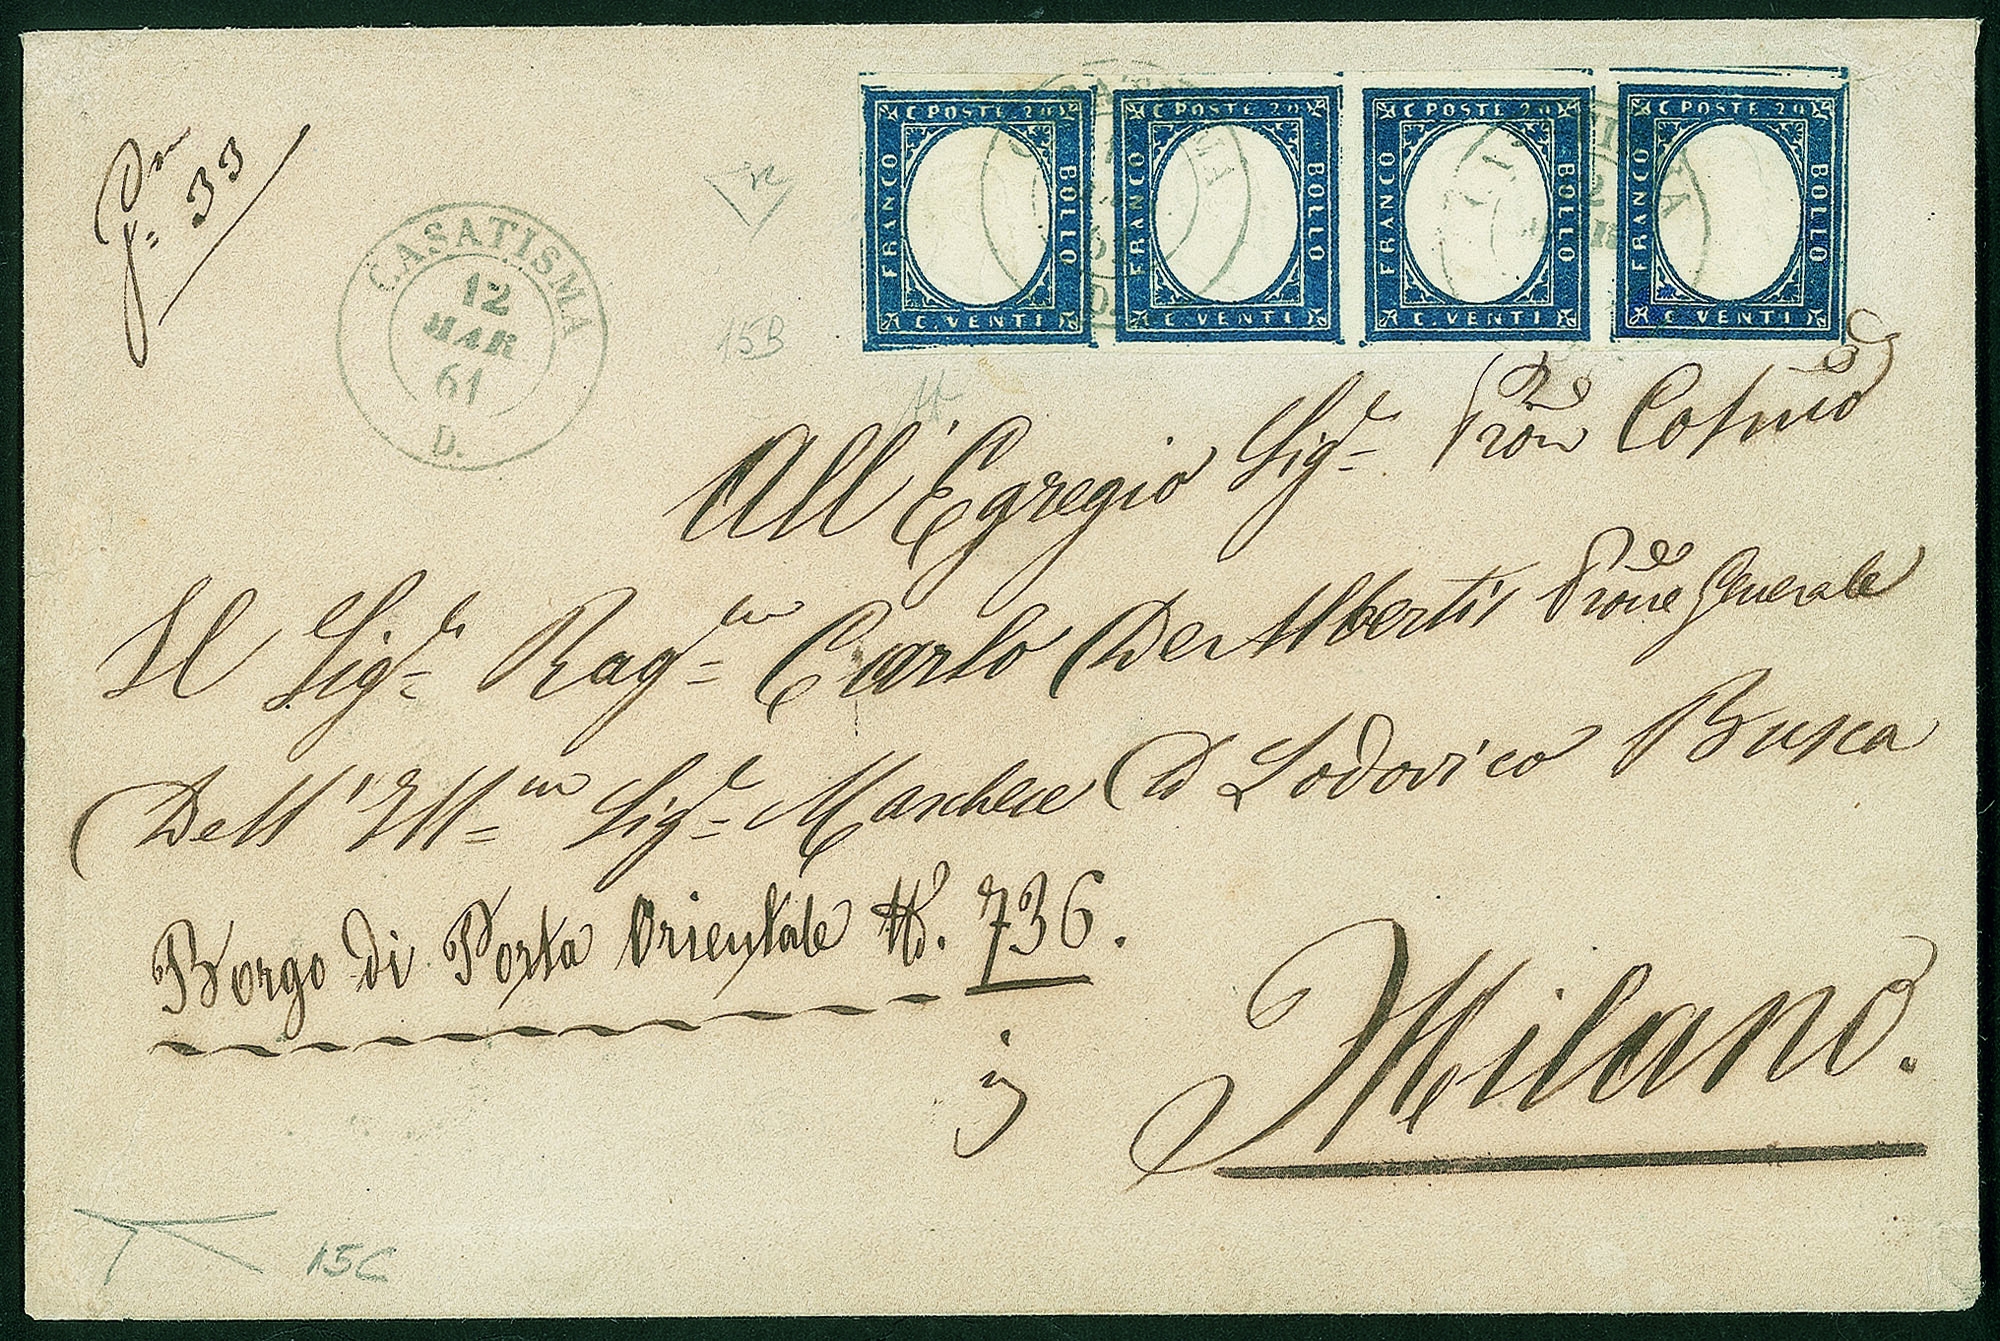 C POSTE 20 C POSTE 20 C POSTE 20 C POSTE 20
FRANCO BOLLO FRANCO BOLLO FRANCO BOLLO FRANCO BOLLO
C. VENTI C. VENTI C. VENTI C. VENTI
33
CASATISMA
12
MAR
61
D.
15B
All' Egregio Sig.r Cosmo
Il Sig.r Rag.re Carlo De Alberti Generale
Dell' Ill.mo Sig.r Marchese D Lodovico Busca
Borgo di Porta Orientale N. 736.
Milano.
15C